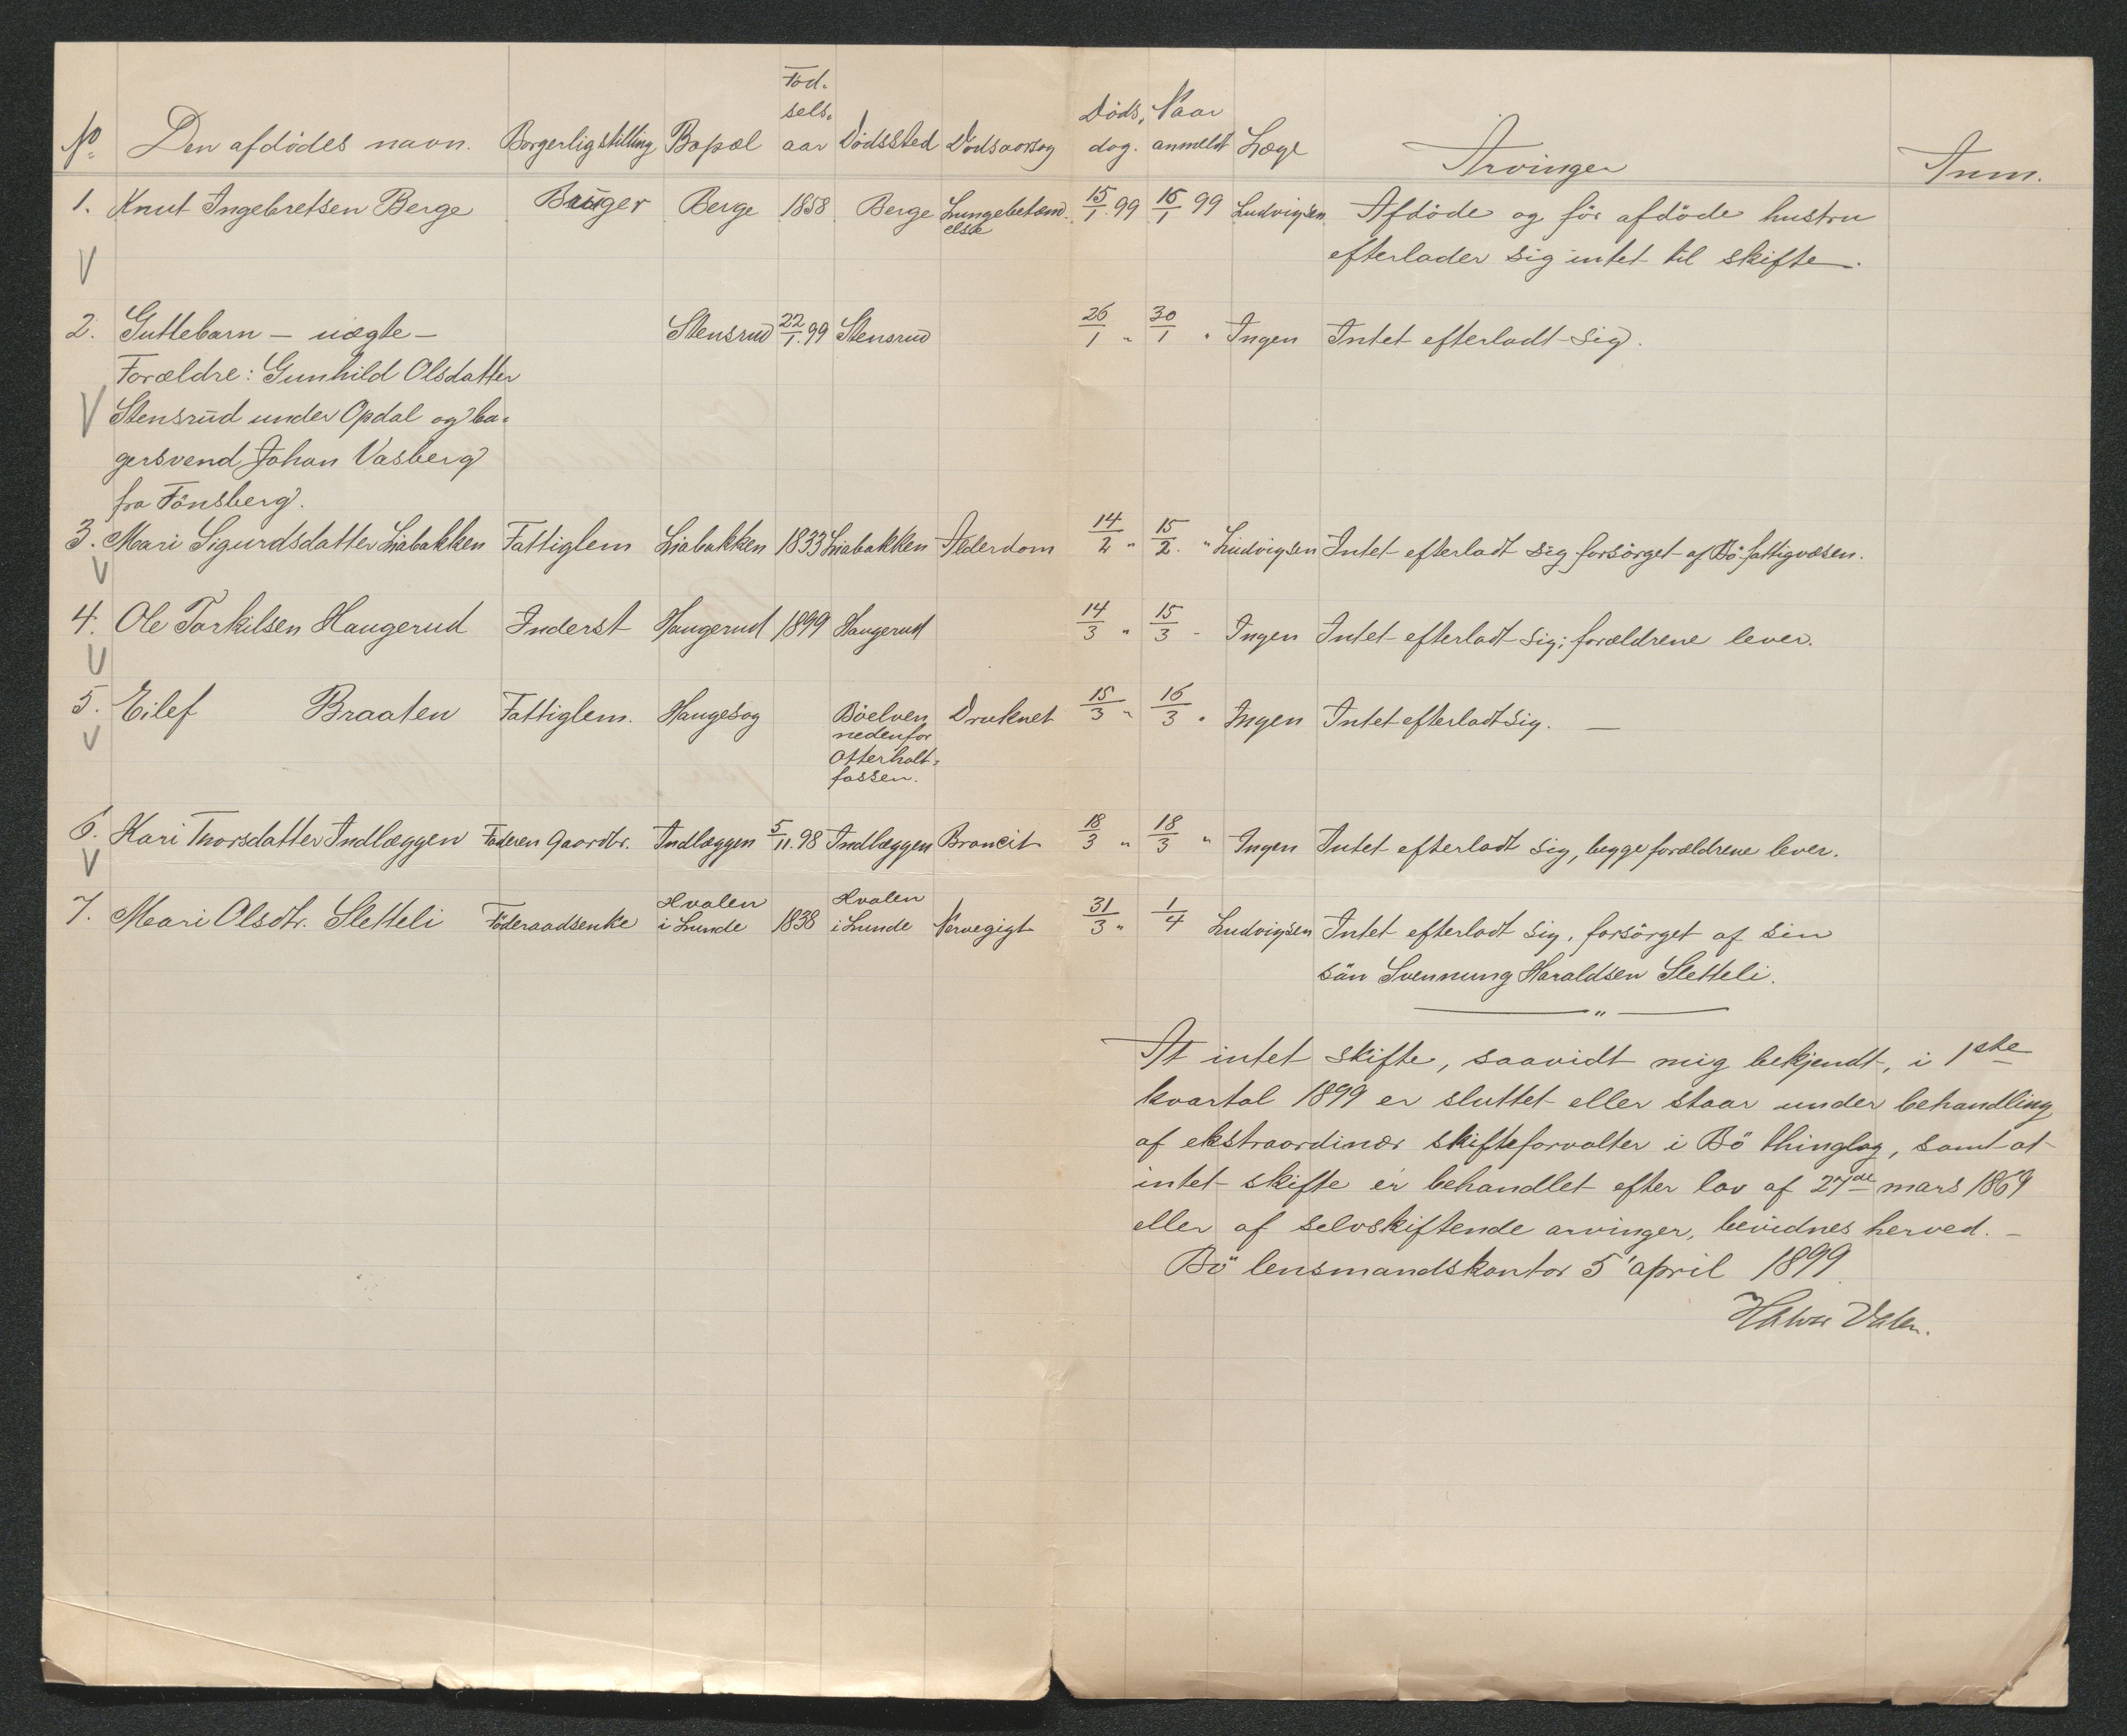 No. Den afdödes navn. Borgerlig stilling Bopæl Föd-sels-aar Dödssted Dödsaarsag Döds-dag. Naar anmeldt Læge Arvinger Anm.
1. Knut Ingebretsen Berge Bruger Berge 1858 Berge Lungebetænd- 15/1. 99 16/1 99 Ludvigsen Afdöde og för afdöde hustru
else
efterlader sig intet til skifte.
2. Guttebarn – uægte – Stensrud 22/1. 99 Stensrud 26/1 " 30/1 " Ingen Intet efterladt sig.
Forældre: Gunhild Olsdatter
Stensrud under Opdal og ba-
gersvend Johan Vasberg
fra Tönsberg.
3. Mari Sigurdsdatter Liabakken Fattiglem Liabakken 1833 Liabakken Alderdom 14/2 " 15/2. " Ludvigsen Intet efterladt sig forsörget af Bö fattigvæsen.
4. Ole Torkilsen Haugerud Inderst Haugerud 1899 Haugerud 14/3 " 15/3 - Ingen Intet efterladt sig; forældrene lever.
5. Eilef Braaten Fattiglem. Haugesag Böelven Druknet 15/3 " 16/3 " Ingen Intet efterladt sig. —
nedenfor
Otterholt-
fossen.
6. Kari Thorsdatter Indlæggen Faderen Gaardbr. Indlæggen 5/11. 98 Indlæggen Broncit 18/3 " 18/3 " Ingen Intet efterladt sig, begge forældrene lever.
7. Mari Olsdtr. Sletteli Föderaadsenke Hvalen i Lunde 1838 Hvalen i Lunde Nervegigt 31/3 " 1/4 Ludvigsen Intet efterladt sig, forsörget af sin
sön Svennung Haraldsen Sletteli.
— " —
At intet skifte, saavidt mig bekjendt, i 1ste
kvartal 1899 er sluttet eller staar under behandling
af ekstraordinær skifteforvalter i Bö thinglag, samt at
intet skifte er behandlet efter lov af 27de mars 1869
eller af selvskiftende arvinger, bevidnes herved. –
Bö lensmandskontor 5' april 1899
Halvor Valen.